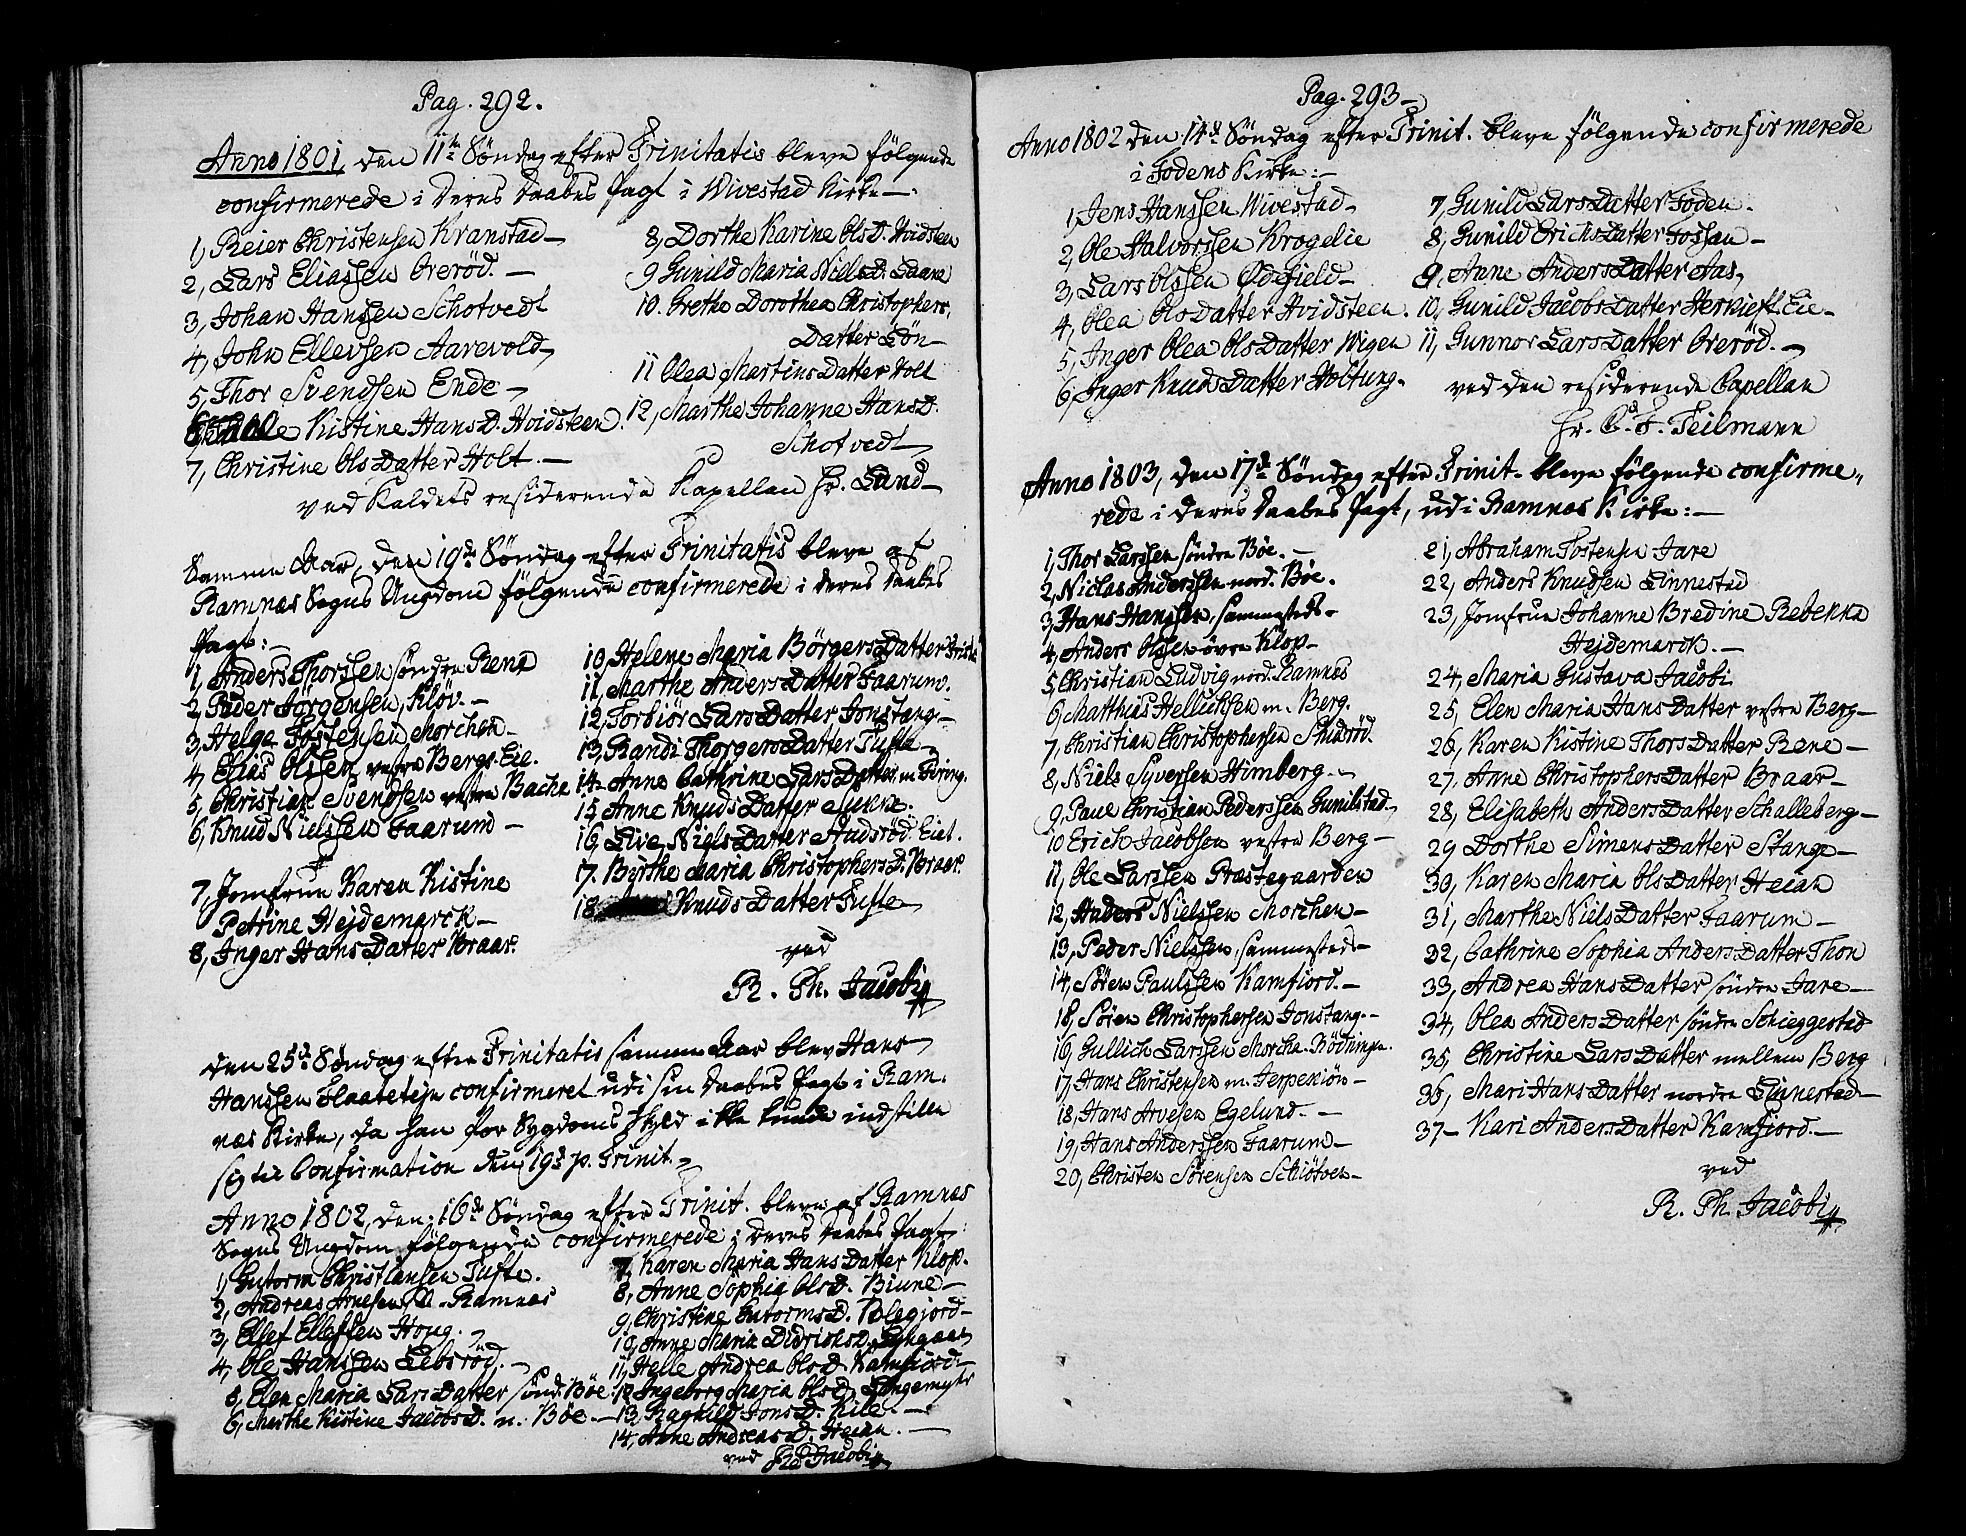 Pag. 292.
Anno 1801, den 11te Söndag efter Trinitatis bleve følgende
confirmerede i deres Daabes Pagt i Wivestad Kirke —:
1, Reier Christensen Kranstad —
2, Lars Eliassen Orerød. —
3, Johan Hanssen Schotvedt
4, John Ellevsen Aarevold,
5, Thor Svendsen Ende —
Kistine Hans D. Hvidsteen.
7, Christine Ols Datter Holt. —
8, Dorthe Karine Ols D. Hvidsteen
9 Gunild Maria Niels D. Laane
10. Grethe Dorothea Christophers
Datter Løn —
11 Olea Martins Datter Holt
12, Marthe Johanne Hans D.
Schotvedt,
ved Kaldets residerende Kapellan Hr. Lund —
Samme Aar, den 19de Söndag efter Trinitatis bleve af
Ramnæs Sogns Ungdom følgende confirmerede i deres Daabes
Pagt: —
1, Anders Thorssen søndre Rene
2, Peder Jörgensen, Kløv. —
3, Helge Tostensen Morchen —
4, Elias Olssen vestre Bergs Eie.
5, Christian Svendsen vestre Bache
6, Knud Nielssen Faarum —
7, Jomfrue Karen Kistine
Petrine Hejdemarck —
8, Inger Hans Datter Braar.
10, Helene Maria Börgers Datter
11, Marthe Anders Datter Faarum.
12, Torbiör Lars Datter Jonstang —
13, Randi Thorgers Datter Tufte
14 Anne Cathrine Lars Datter m. Firing.
15, Anne Knuds Datter
16, Live Niels Datter Studsrød Eiet.
17. Berthe Maria Christophers D. Braar.
18 Knuds Datter Tufte
ved
R. Ph. Jacobi
den 25de Söndag efter Trinitatis samme Aar blev Hans
Hanssen Flaatetejn confirmeret udi sin Daabes Pagt i Ram-
næs Kirke, da han for Sygdoms Skyld ikke kunde indstille
sig til Confirmation den 19de p. Trinit. —
Anno 1802, den 16de Söndag efter Trinit. bleve af Ramnæs
Sogns Ungdom følgende confirmerede i deres Daabes Pagt:
1, Gutorm Christiansen Tufte.
2, Andreas Arnesen Ramnæs
3, Ellef Ellefsen Houg. —
4, Ole Hanssen Lebsrød. —
5, Elen Maria Lars Datter sønd. Böe
6, Marthe Kistine Jacobs D. n. Böe —
7, Karen Maria Hans Datter Klop.
8, Anne Sophia Ols D. Biune —
9, Christine Gutorms D. Blegjord —
10, Anne Maria Didrichs D.
11, Helle Andrea Ols D. Kamfiord —
12 Ingeborg Maria Ols D. Langemyhr
13, Ragnild Jons D. Kile. —
14, Anne Andreas D. Heian. —
ved R P Jacobi
Pag. 293 —
Anno 1802 den 14de Söndag efter Trinit. bleve følgende confirmerede
i Fodens Kirke: —
1, Jens Hanssen Wivestad —
2, Ole Halvorssen Krogelie
3, Lars Olssen Ødefield —
4, Olea Ols Datter Hvidsteen.
5, Inger Olea Ols Datter Wigen
6, Inger Knuds Datter Holtung.
7, Gunild Lars Datter Foden.
8, Gunild Erichs Datter Fossan —
9, Anne Anders Datter Aas,
10, Gunild Jacobs Datter Eie —
11, Gunnor Lars Datter Orerød. —
ved den residerende Capellan
Hr. C. F. Teilmann
Anno 1803, den 17de Söndag efter Trinit. bleve følgende confirme-
rede i deres Daabes Pagt, udi Ramnæs Kirke: —
1, Thor Larssen søndre Böe. —
2, Niclas Anderssen nord. Böe.
3, Hans Hanssen, sammesteds —
4, Anders Olssen øvre Klop —
5, Christian Ludvig nord. Ramnæs
6, Matthias Hellichsen m. Berg.
7, Christian Christophersen Studsrød.
8, Niels Syversen Himberg. —
9, Paul Christian Pederssen Gunilstad,
10 Erich Jacobsen vestre Berg —
11, Ole Larssen Præstegaarden
12, Anders Nielssen Morchen —
13, Peder Nielssen, sammesteds —
14, Sören Paulssen Kamfiord. —
18, Sören Christophersen Jonstang. —
16, Gullich Larssen Morche-Bödningen.
17, Hans Christensen m. Jerpekiön —
18, Hans Arvesen Egelund. —
19, Hans Anderssen Faarum —
20, Christen Sörensen Schiötven —
21, Abraham Tostensen Jare
22, Anders Knudsen Linnestad
23, Jomfrue Johanne Bredine Rebekka
Hejdemarck. —
24, Maria Gustava Jacobi
25, Elen Maria Hans Datter vestre Berg —
26, Karen Kistine Thors Datter Rene —
27, Anne Christophers Datter Braar —
28, Elisabeth Anders Datter Schalleberg —
29 Dorthe Simens Datter Stange —
30, Karen Maria Ols Datter Heian
31, Marthe Niels Datter Faarum —
32, Cathrine Sophia Anders Datter Thon
33, Andrea Hans Datter søndre Jare —
34, Olea Anders Datter søndre Schieggestad
35, Christine Lars Datter mellem Berg
36, Mari Hans Datter nordre Linnestad —
37 — Kari Anders Datter Kamfiord. —
ved
R. Ph. Jacobi